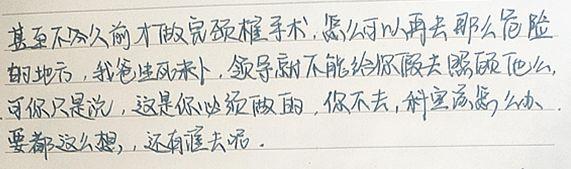 甚至不久前才做完颈椎手术,怎么可以再去那么危险
的地方,我爸生死未卜,领导就不能给你假去照顾他么,
可你只是说,这是你必须做的,你不去,科室该怎么办,
要都这么想,,还有谁去呢.